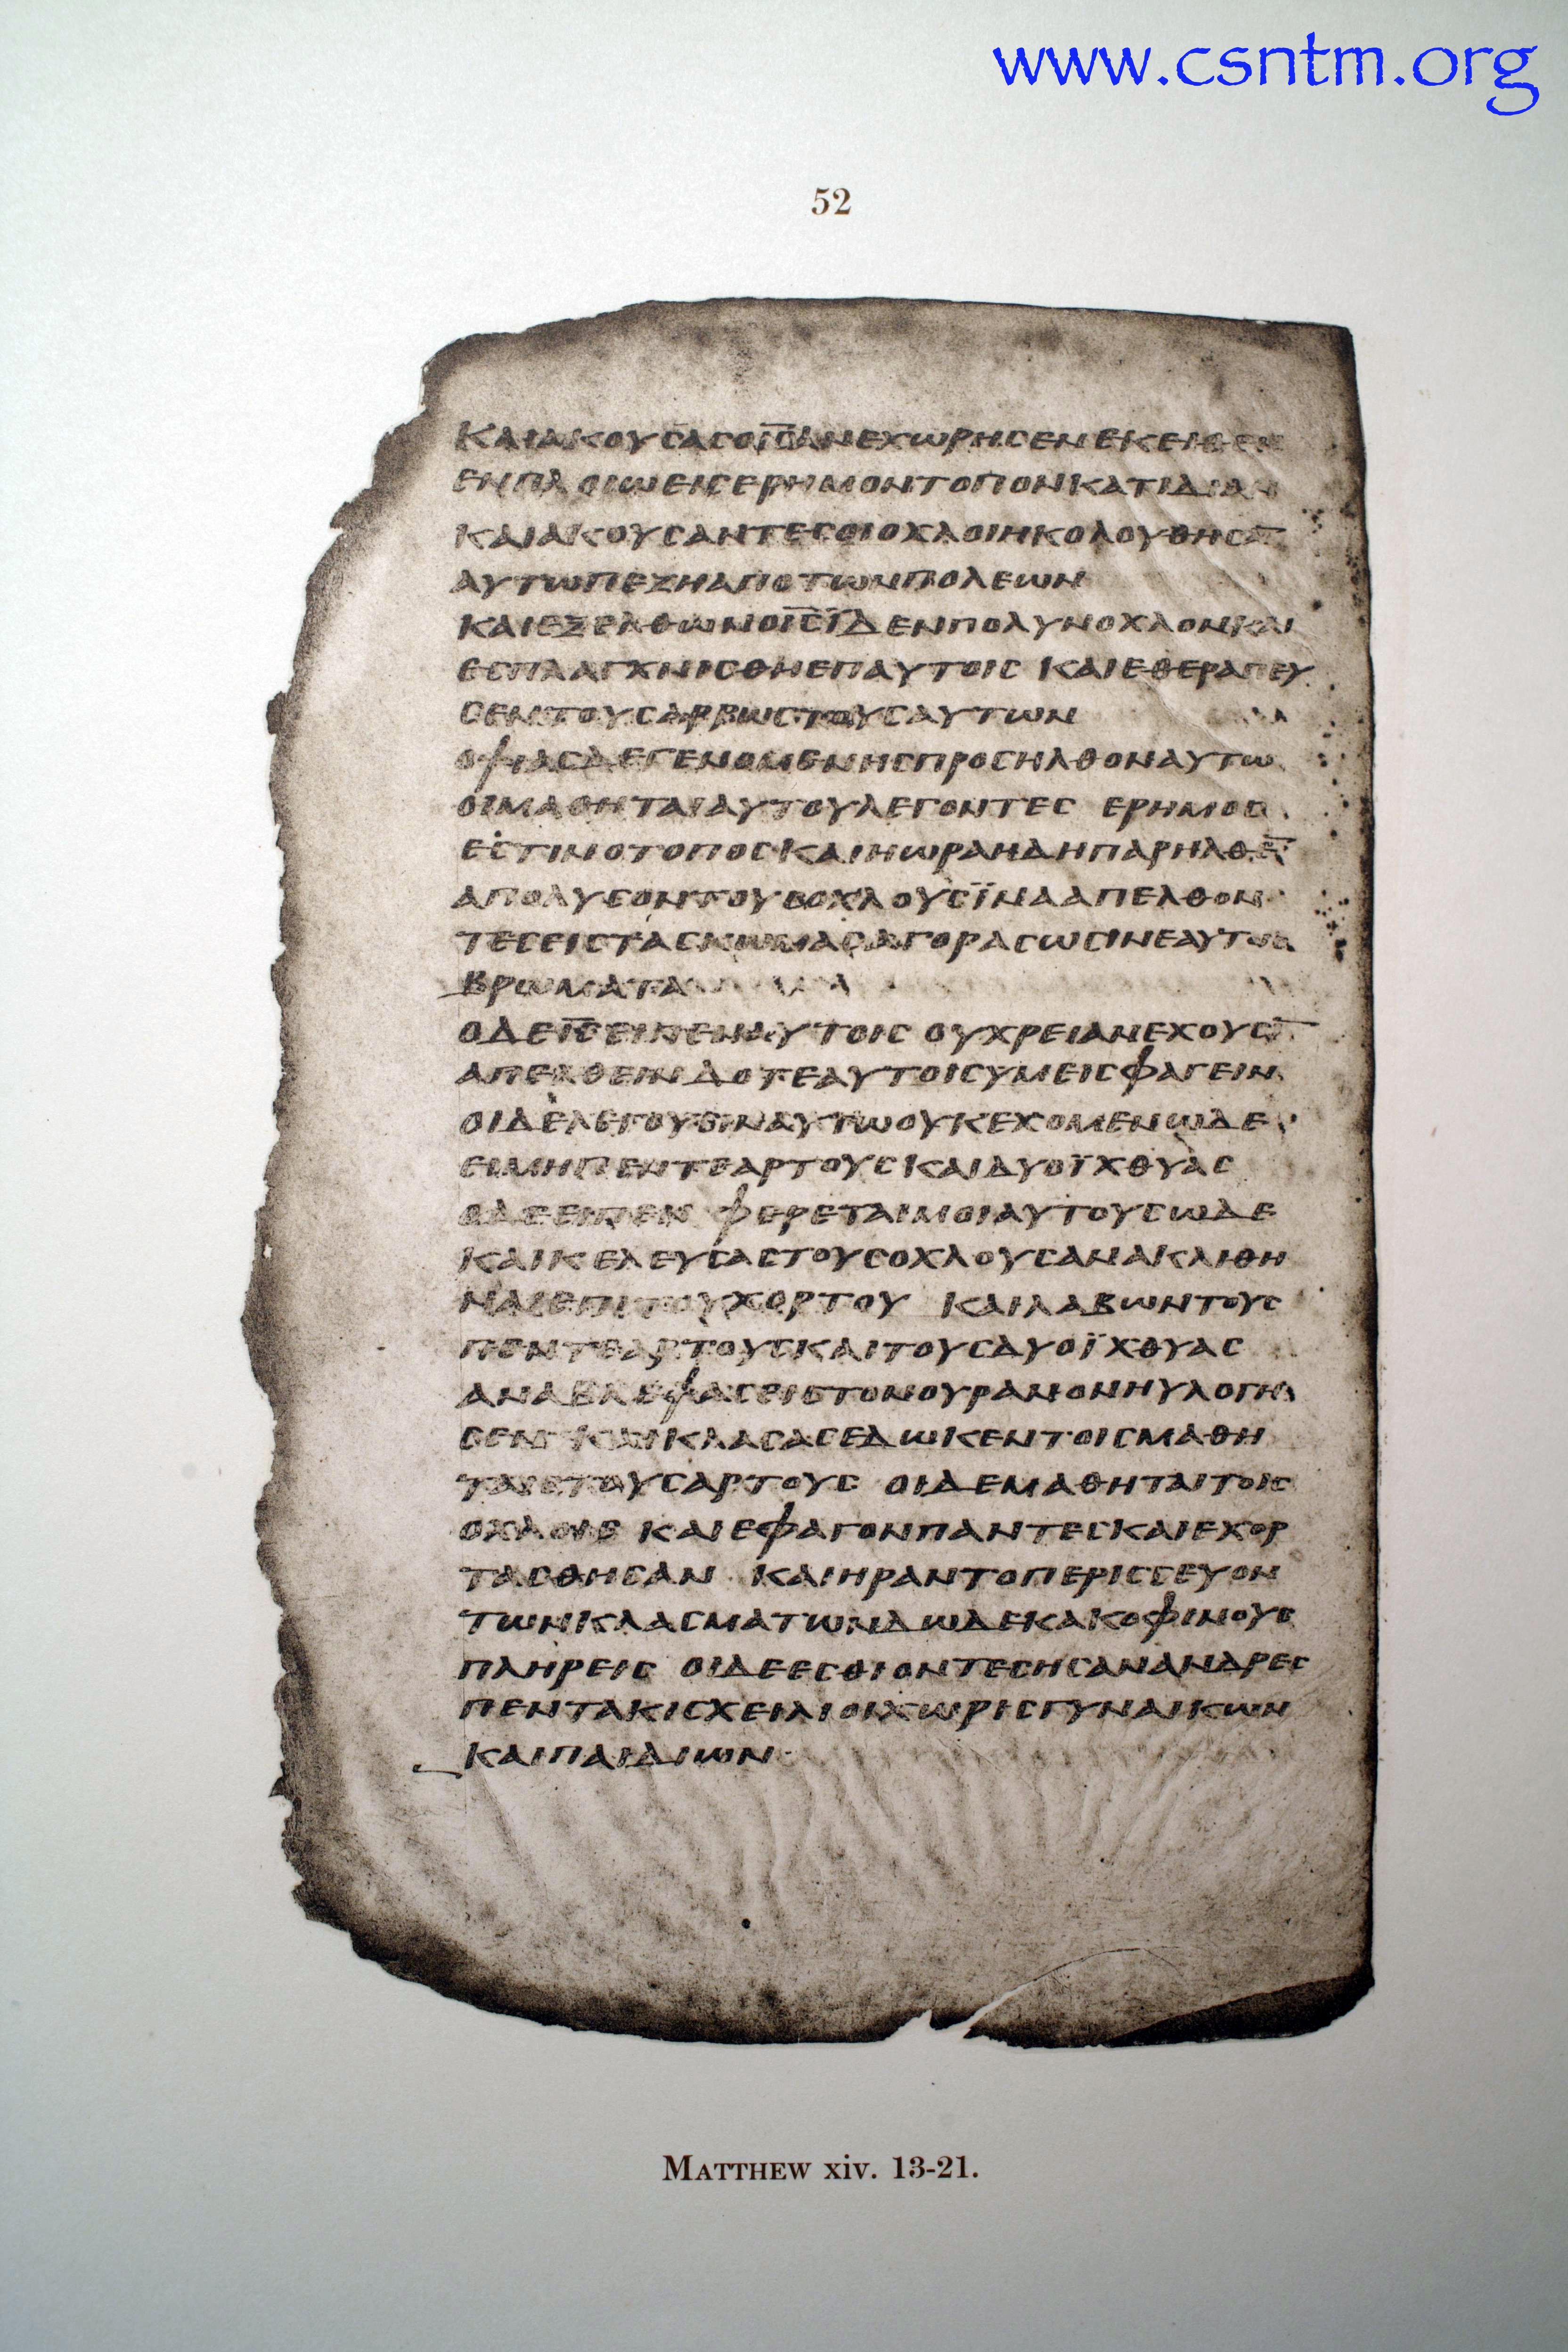 www.csntm.org
52
ΚΑΙΑΚΟΥϹΑϹΟΙ̅Ϲ̅ΑΝΕΧΩΡΗϹΕΝΕΚΕΙΘΕΝ
ΕΝΠΛΟΙΩΕΙϹΕΡΗΜΟΝΤΟΠΟΝΚΑΤΙΔΙΑΝ
ΚΑΙΑΚΟΥϹΑΝΤΕϹΟΙΟΧΛΟΙΗΚΟΛΟΥΘΗϹΑ̅
ΑΥΤΩΠΕΖΗΑΠΟΤΩΝΠΟΛΕΩΝ
ΚΑΙΕΞΕΛΘΩΝΟΙ̅Ϲ̅ΪΔΕΝΠΟΛΥΝΟΧΛΟΝΚΑΙ
ΕϹΠΛΑΓΧΝΙϹΘΗΕΠΑΥΤΟΙϹ ΚΑΙΕΘΕΡΑΠΕΥ
ϹΕΝΤΟΥϹΑΡΡΩϹΤΟΥϹΑΥΤΩΝ
ΟΨΙΑϹΔΕΓΕΝΟΜΕΝΗϹΠΡΟϹΗΛΘΟΝΑΥΤΩ
ΟΙΜΑΘΗΤΑΙΑΥΤΟΥΛΕΓΟΝΤΕϹ ΕΡΗΜΟϹ
ΕϹΤΙΝΟΤΟΠΟϹΚΑΙΗΩΡΑΗΔΗΠΑΡΗΛΘΕ̅
ΑΠΟΛΥϹΟΝΤΟΥϹΟΧΛΟΥϹΪΝΑΑΠΕΛΘΟΝ
ΤΕϹΕΙϹΤΑϹΚΩΜΑϹΑΓΟΡΑϹΩϹΙΝΕΑΥΤΟΙϹ
ΒΡΩΜΑΤΑ
ΟΔΕΙ̅Ϲ̅ΕΙΠΕΝΑΥΤΟΙϹ ΟΥΧΡΕΙΑΝΕΧΟΥϹΙ̅
ΑΠΕΛΘΕΙΝΔΟΤΕΑΥΤΟΙϹΥΜΕΙϹΦΑΓΕΙΝ
ΟΙΔΕΛΕΓΟΥϹΙΝΑΥΤΩΟΥΚΕΧΟΜΕΝΩΔΕ
ΕΙΜΗΠΕΝΤΕΑΡΤΟΥϹΚΑΙΔΥΟΪΧΘΥΑϹ
ΟΔΕΕΙΠΕΝ ΦΕΡΕΤΑΙΜΟΙΑΥΤΟΥϹΩΔΕ
ΚΑΙΚΕΛΕΥϹΑϹΤΟΥϹΟΧΛΟΥϹΑΝΑΚΛΙΘΗ
ΝΑΙΕΠΙΤΟΥΧΟΡΤΟΥ ΚΑΙΛΑΒΩΝΤΟΥϹ
ΠΕΝΤΕΑΡΤΟΥϹΚΑΙΤΟΥϹΔΥΟΪΧΘΥΑϹ
ΑΝΑΒΛΕΨΑϹΕΙϹΤΟΝΟΥΡΑΝΟΝΗΥΛΟΓΗ
ϹΕΝ ΚΑΙΚΛΑϹΑϹΕΔΩΚΕΝΤΟΙϹΜΑΘΗ
ΤΑΙϹΤΟΥϹΑΡΤΟΥϹ ΟΙΔΕΜΑΘΗΤΑΙΤΟΙϹ
ΟΧΛΟΙϹ ΚΑΙΕΦΑΓΟΝΠΑΝΤΕϹΚΑΙΕΧΟΡ
ΤΑϹΘΗϹΑΝ ΚΑΙΗΡΑΝΤΟΠΕΡΙϹϹΕΥΟΝ
ΤΩΝΚΛΑϹΜΑΤΩΝΔΩΔΕΚΑΚΟΦΙΝΟΥϹ
ΠΛΗΡΕΙϹ ΟΙΔΕΕϹΘΙΟΝΤΕϹΗϹΑΝΑΝΔΡΕϹ
ΠΕΝΤΑΚΙϹΧΕΙΛΙΟΙΧΩΡΙϹΓΥΝΑΙΚΩΝ
ΚΑΙΠΑΙΔΙΩΝ
MATTHEW xiv. 13-21.